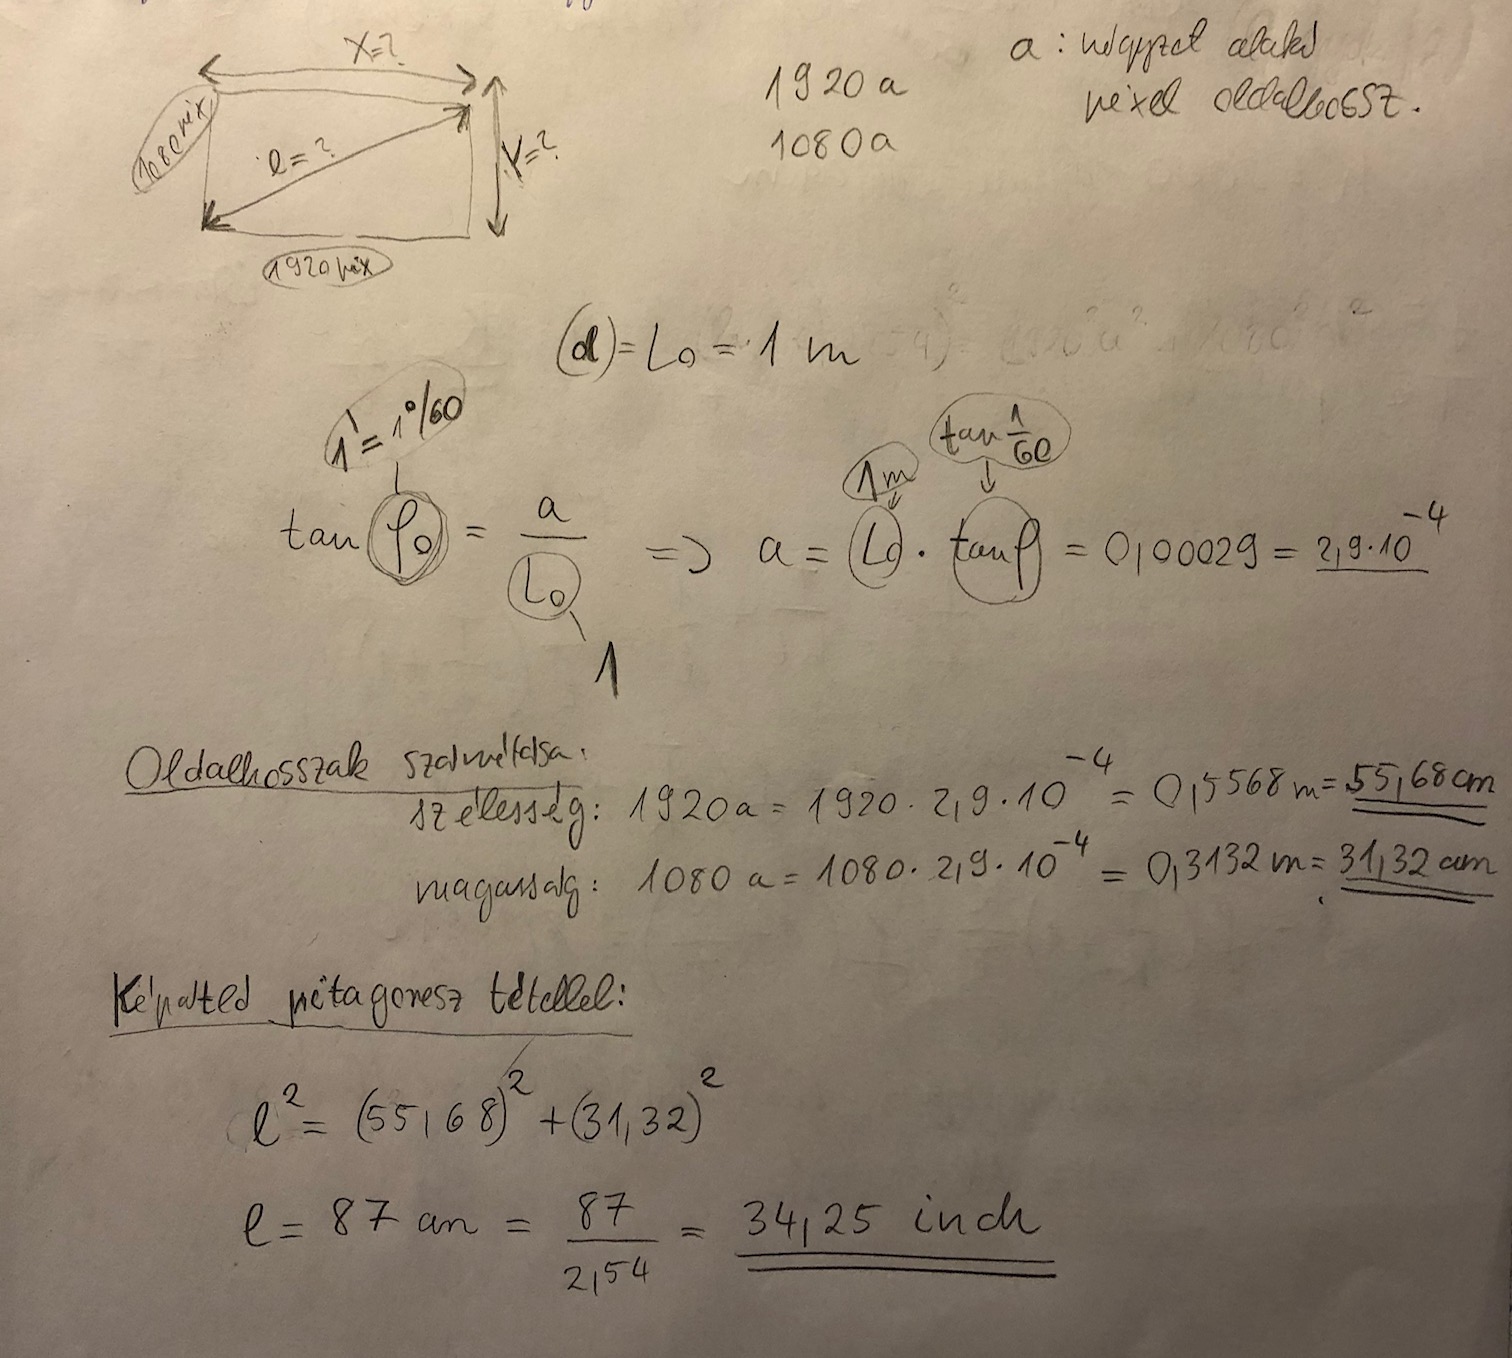 X=?
1080 pix
l = ?
Y=?
1920 pix
1920 a
1080 a
a : négyzet alakú
pixel oldalhossz.
(d) = L0 = 1 m
1' = 1°/60
tan φ0 = a / L0 => a = L0 · tan φ = 0,00029 = 2,9·10^-4
1
1m
tan 1/60
Oldalhosszak számítása:
szélesség: 1920 a = 1920 · 2,9 · 10^-4 = 0,5568 m = 55,68 cm
magasság: 1080 a = 1080 · 2,9 · 10^-4 = 0,3132 m = 31,32 cm
Képátló pitagorasz tétellel:
l^2 = (55,68)^2 + (31,32)^2
l = 87 cm = 87 / 2,54 = 34,25 inch